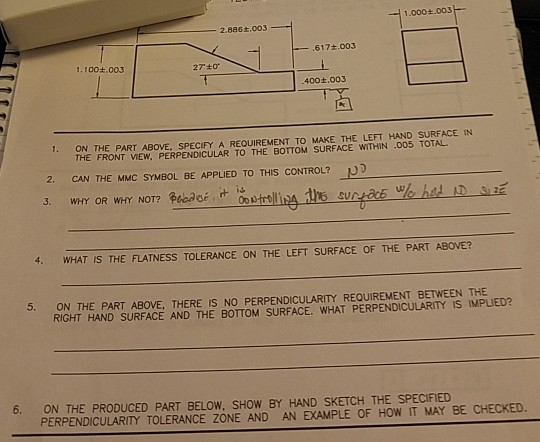 1.000±.003
2.886±.003
.617±.003
1.100±.003
27°±0°
.400±.003
A
1. ON THE PART ABOVE, SPECIFY A REQUIREMENT TO MAKE THE LEFT HAND SURFACE IN
THE FRONT VIEW, PERPENDICULAR TO THE BOTTOM SURFACE WITHIN .005 TOTAL.
2. CAN THE MMC SYMBOL BE APPLIED TO THIS CONTROL? NO
3. WHY OR WHY NOT? Because, it is controlling the surface w/o had NO SIZE
4. WHAT IS THE FLATNESS TOLERANCE ON THE LEFT SURFACE OF THE PART ABOVE?
5. ON THE PART ABOVE, THERE IS NO PERPENDICULARITY REQUIREMENT BETWEEN THE
RIGHT HAND SURFACE AND THE BOTTOM SURFACE. WHAT PERPENDICULARITY IS IMPLIED?
6. ON THE PRODUCED PART BELOW, SHOW BY HAND SKETCH THE SPECIFIED
PERPENDICULARITY TOLERANCE ZONE AND AN EXAMPLE OF HOW IT MAY BE CHECKED.